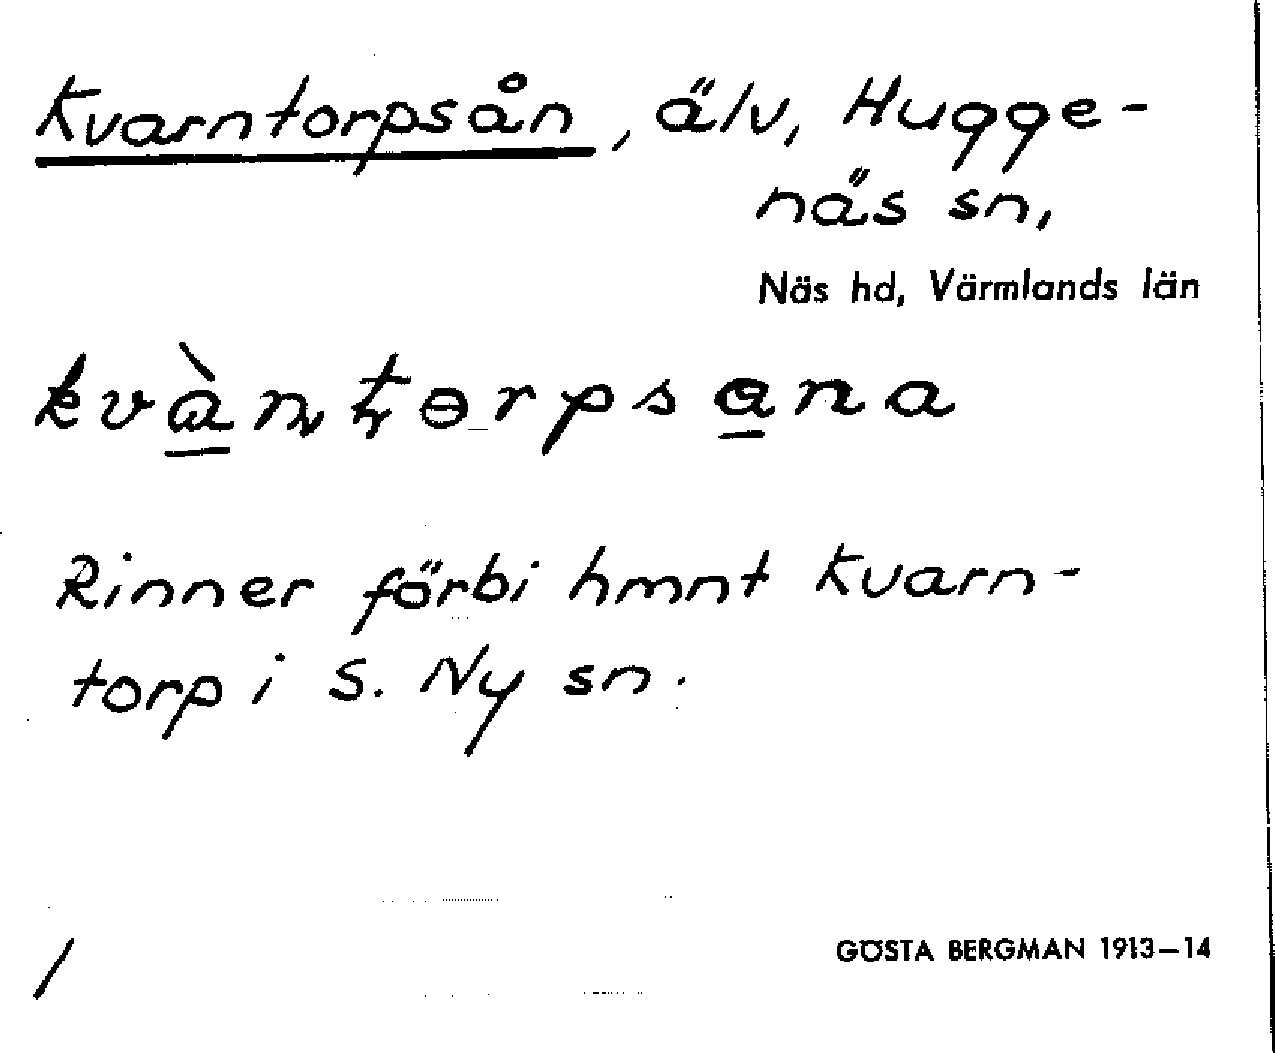 Kvarntorpsån, älv, Hugge-
näs sn,
Näs hd, Värmlands län
Rinner förbi hmnt Kvarn-
torp i S. Ny sn.
/
GÖSTA BERGMAN 1913–14